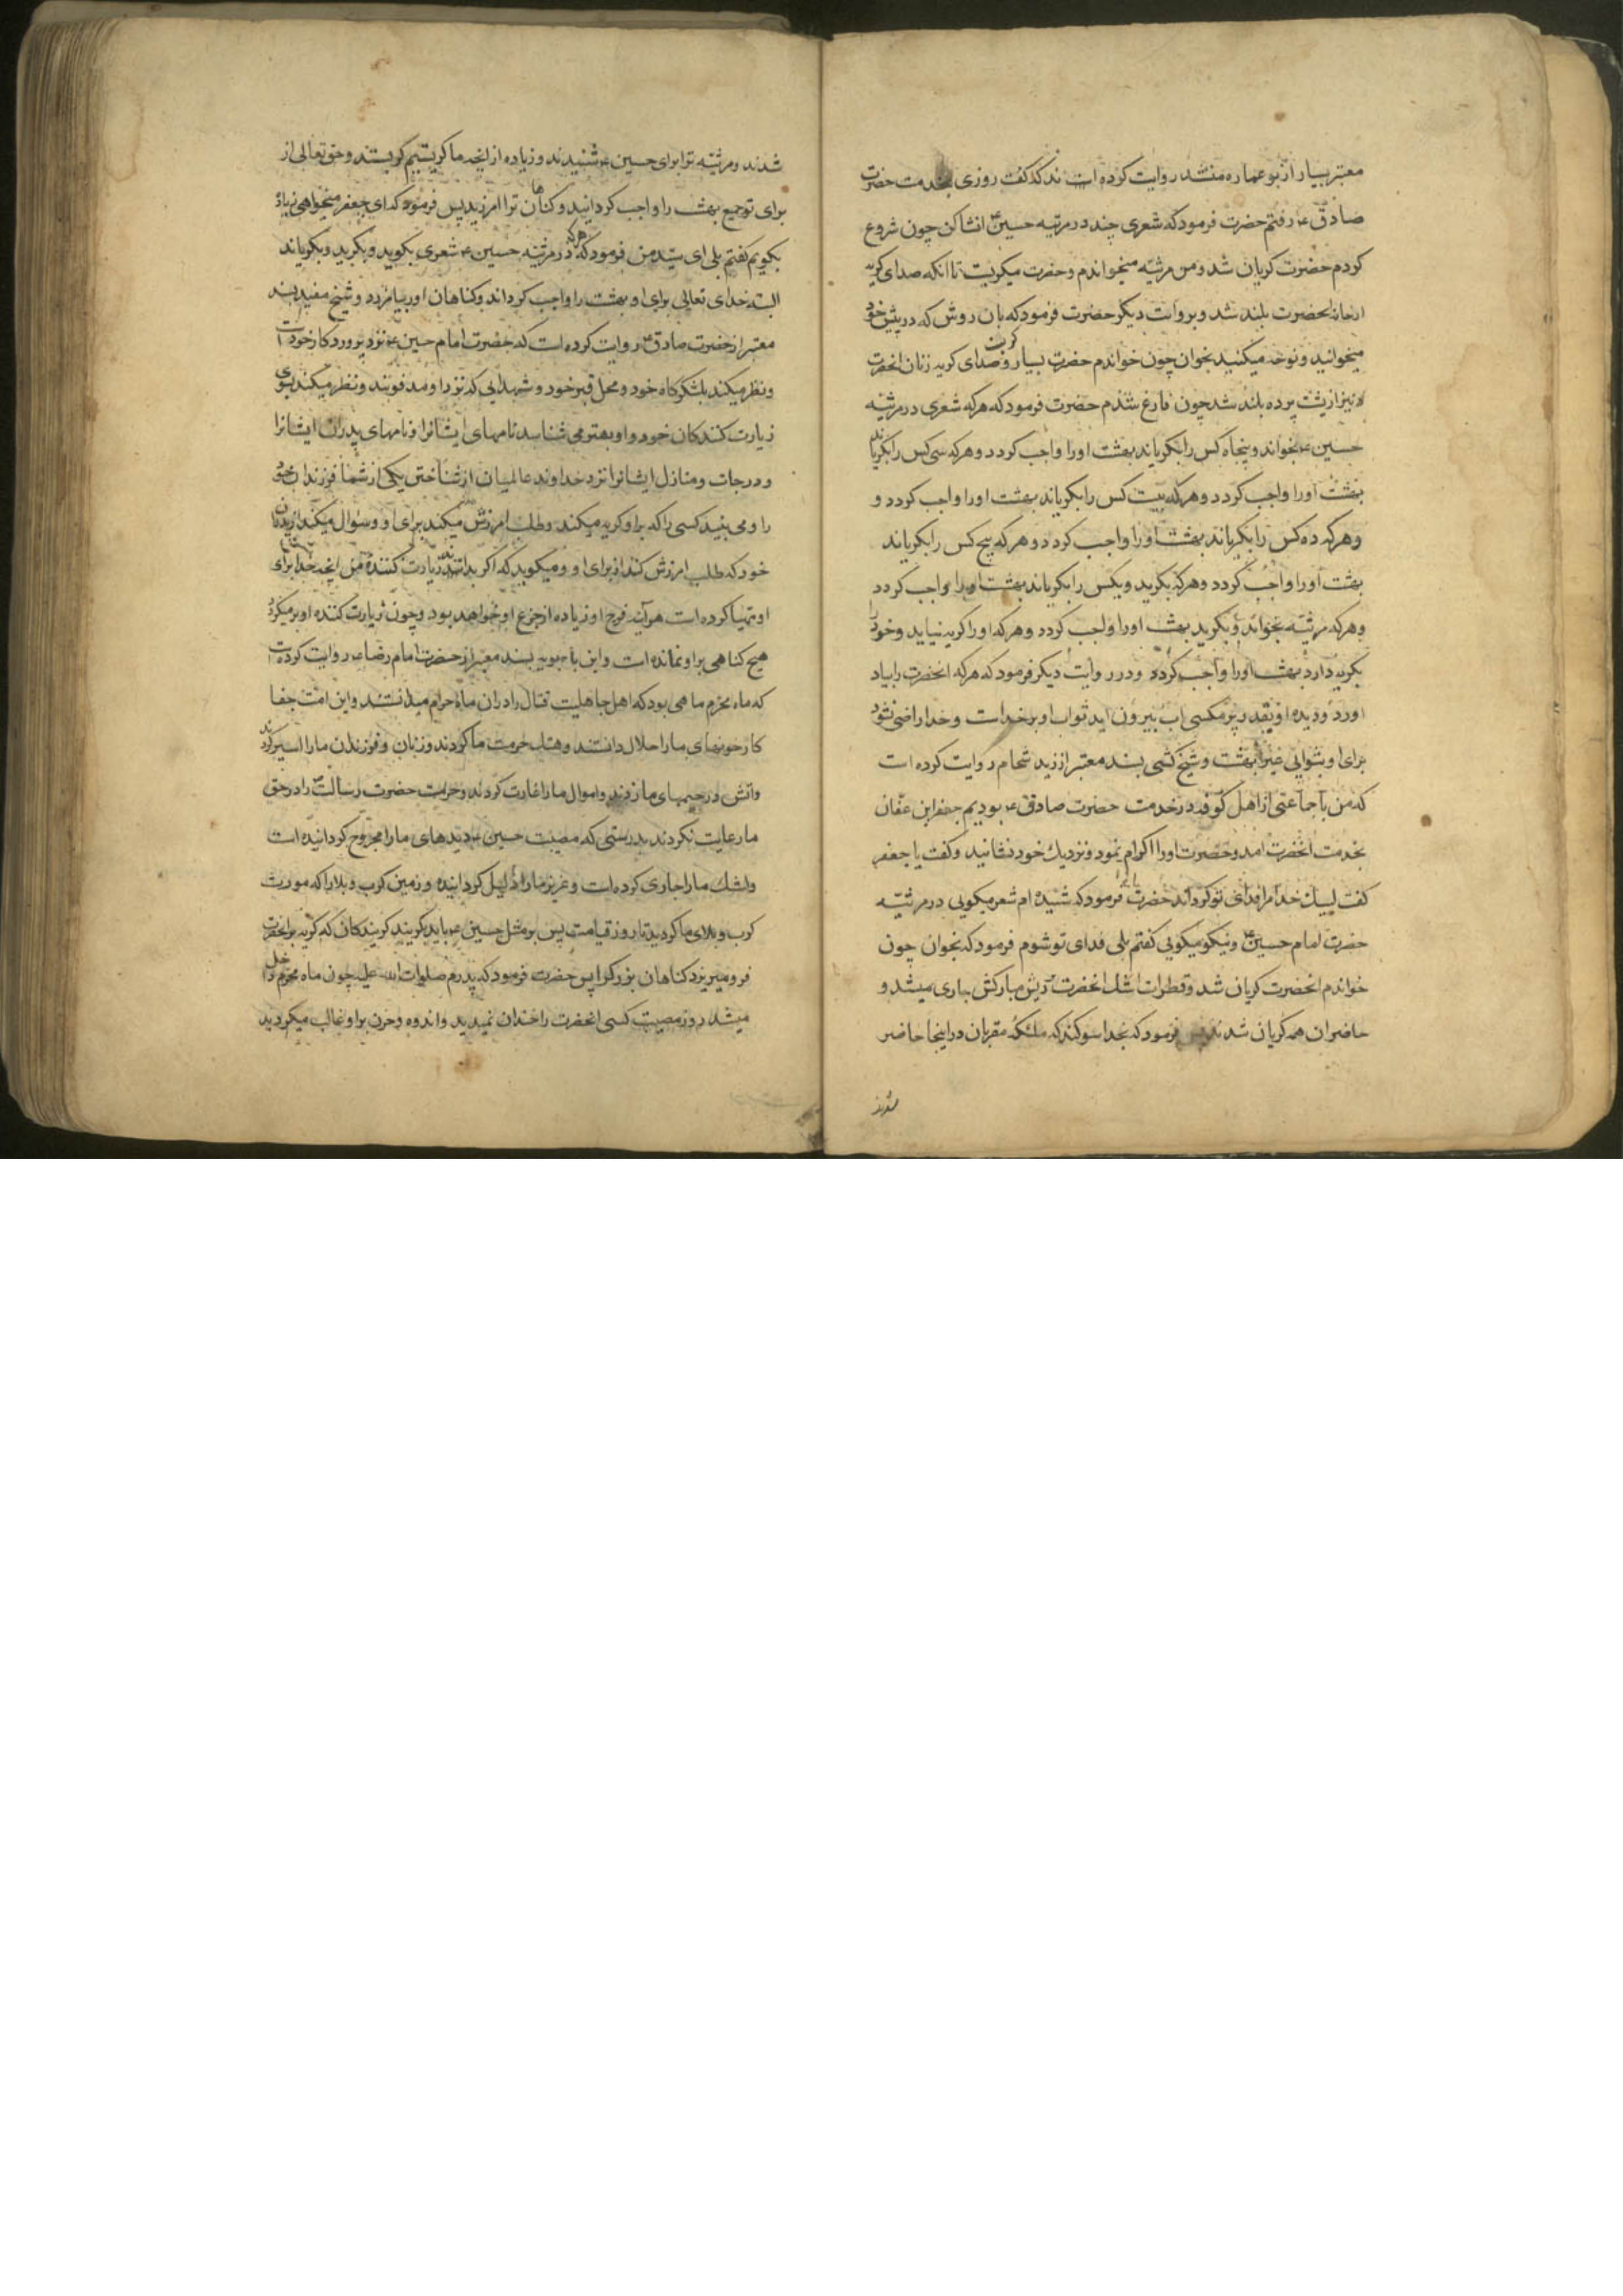 معتبر بسیار از بو عماره منشد روایت کرده اند که گفت روزی بخدمت حضرت
صادق ع رفتم حضرت فرمود که شعری چند در مرثیه حسین ع انشا کن چون شروع
کردم حضرت گریان شد و من مرثیه میخواندم و حضرت میگریست تا انکه صدای گریه
از خانه انحضرت بلند شد و بروایت دیگر حضرت فرمود که بان روش که در پیش خود
میخوانید و نوحه میکنید بخوان چون خواندم حضرت بسیار گریست و صدای گریه زنان انحضرت
نیز از پشت پرده بلند شد چون فارغ شدم حضرت فرمود که هر که شعری در مرثیه
حسین ع بخواند و پنجاه کس را بگریاند بهشت او را واجب گردد و هر که سی کس را بگریاند
بهشت او را واجب گردد و هر که بیست کس را بگریاند بهشت او را واجب گردد و
و هر که ده کس را بگریاند بهشت او را واجب گردد و هر که پنج کس را بگریاند
بهشت او را واجب گردد و هر که بگرید و یکس را بگریاند بهشت او را واجب گردد
و هر که مرثیه بخواند و بگرید بهشت او را واجب گردد و هر که او را گریه نیاید و خود را
بگریه دارد بهشت او را واجب گردد و در روایت دیگر فرمود که هر که انحضرت را بیاد
اورد و دیده او بقدر پر مکسی اب بیرون اید ثواب او بر خداست و خدا راضی نشود
برای او بثوابی غیر بهشت و شیخ کشی بسند معتبر از زید شحام روایت کرده است
که من با جماعتی از اهل کوفه در خدمت حضرت صادق ع بودیم جعفر ابن عفان
بخدمت انحضرت امد و حضرت او را اکرام نمود و نزدیک خود نشانید و گفت یا جعفر
گفت لبیک خدا مرا فدای تو گرداند حضرت فرمود که شنیده ام شعر میگویی در مرثیه
حضرت امام حسین ع و نیکو میگویی گفتم بلی فدای تو شوم فرمود که بخوان چون
خواندم انحضرت گریان شد و قطرات اشک انحضرت بر ریش مبارکش جاری میشد و
حاضران همه گریان شدند پس فرمود که بخدا سوگند که ملئکه مقربان در اینجا حاضر
شدند
شدند و مرثیه ترا برای حسین ع شنیدند و زیاده از انچه ما گریستیم گریستند و حق تعالی از
برای تو جمیع بهشت را واجب گردانید و گناهان ترا امرزید پس فرمود که ای جعفر میخواهی زیاده
بگویم گفتم بلی ای سید من فرمود که هر که در مرثیه حسین ع شعری بگوید و بگرید و بگریاند
البته خدای تعالی برای او بهشت را واجب گرداند و گناهان او بیامرزد و شیخ مفید بسند
معتبر از حضرت صادق ع روایت کرده است که حضرت امام حسین ع نزد پروردگار خود است
و نظر میکند بلشکرگاه خود و محل قبر خود و شهدایی که نزد او مدفونند و نظر میکند بسوی
زیارت کنندگان خود و او بهتر می شناسد نامهای ایشانرا و نامهای پدران ایشانرا
و درجات و منازل ایشانرا نزد خداوند عالمیان از شناختن یکی از شما فرزندان خود
را و می بیند کسی را که بر او گریه میکند و طلب امرزش میکند برای او و سوال میکند از پدران
خود که طلب امرزش کنند از برای او و میگوید که اگر بداند زیارت کننده من انچه خدا برای
او مهیا کرده است هر اینه فرح او زیاده از جزع او خواهد بود و چون زیارت کننده او بر میگردد
هیچ گناهی بر او نمانده است و ابن بابویه بسند معتبر از حضرت امام رضا ع روایت کرده است
که ماه محرم ماهی بود که اهل جاهلیت قتال را در ان ماه حرام میدانستند و این امت جفا
کار خونهای ما را حلال دانستند و هتک حرمت ما کردند و زنان و فرزندان ما را اسیر کردند
و اتش در خیمهای ما زدند و اموال ما را غارت کردند و حرمت حضرت رسالت را در حق
ما رعایت نکردند بدرستی که مصیبت حسین ع دیدهای ما را مجروح گردانیده است
و اشک ما را جاری کرده است و عزیز ما را ذلیل گردانیده و زمین کرب و بلا را که مورث
کرب و بلای ما گردید تا روز قیامت پس بر مثل حسین ع باید گریند گریندکان که گریه بر انحضرت
فرو میریزد گناهان بزرگ را پس حضرت فرمود که پدرم صلوات الله علیه چون ماه محرم داخل
میشد روز مصیبت کسی انحضرت را خندان نمیدید و اندوه و حزن بر او غالب میگردید